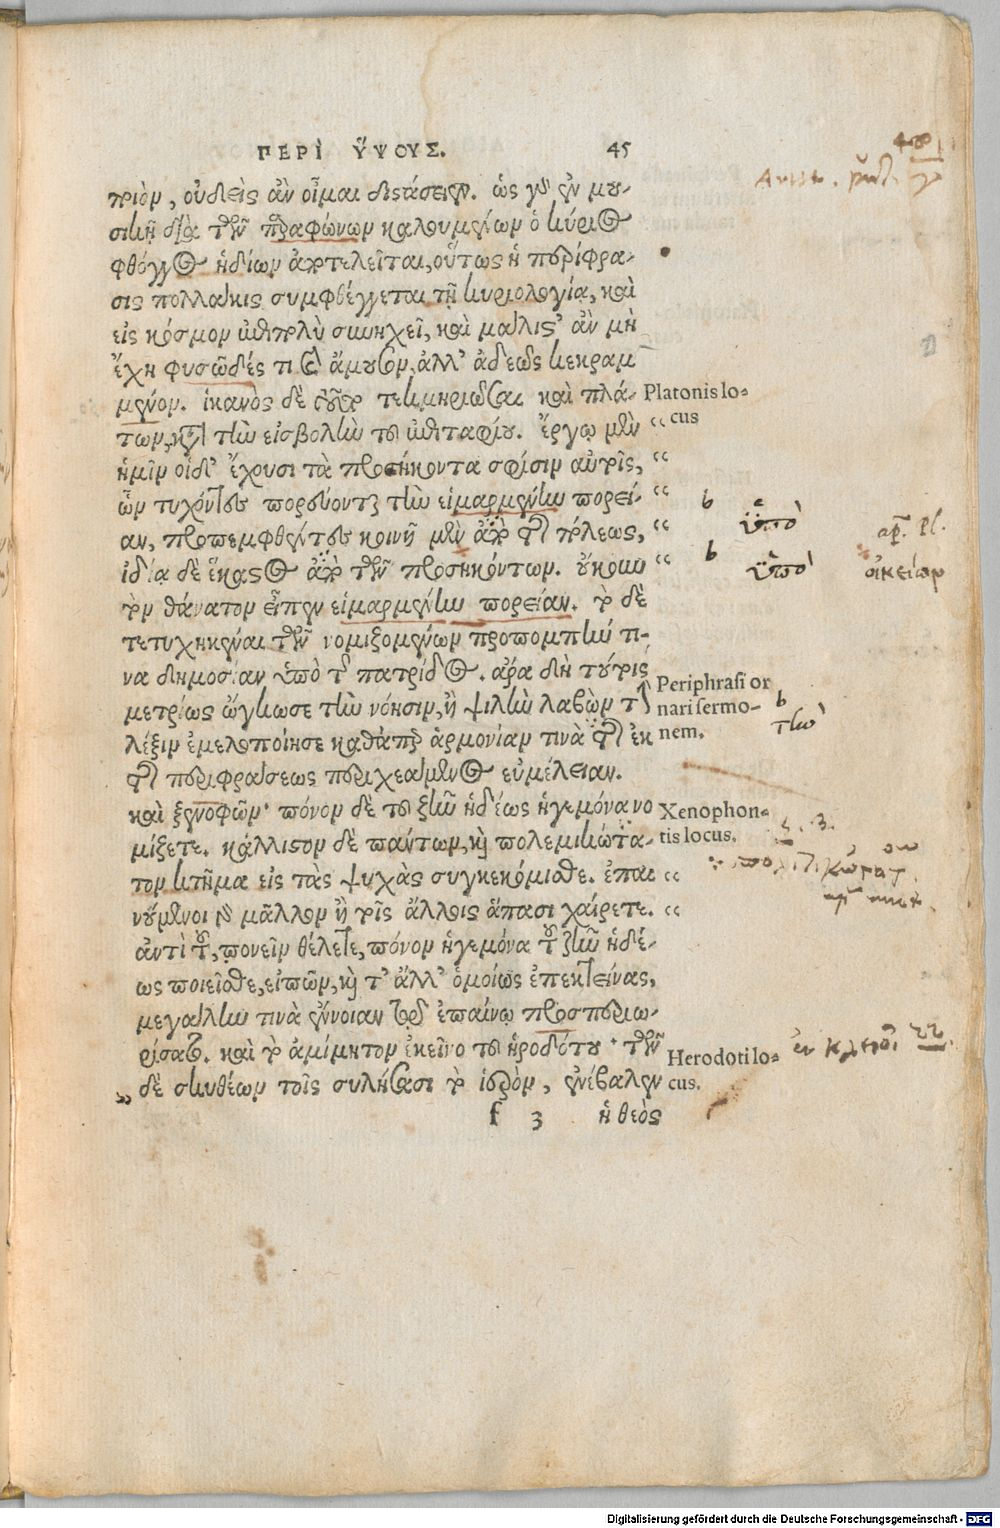 ΠΕΡῚ ὝΨΟΥΣ. 45
τριὸν, οὐδεὶς ἂν οἶμαι διστάσειεν. ὡς γὰρ ἐν μου-
σικῇ διὰ τῶν παραφώνων καλουμένων ὁ κύριος
φθόγγος ἡδίων ἀποτελεῖται, οὕτως ἡ περίφρα-
σις πολλάκις συμφθέγγεται τῇ κυριολογίᾳ, καὶ
εἰς κόσμον ἐπιπολὺ συνηχεῖ, καὶ μάλιστ' ἂν μὴ
ἔχῃ φυσῶδές τι καὶ ἄμουσον, ἀλλ' ἀδεῶς κεκραμ
μένον. ἱκανὸς δὲ τοῦτο τεκμηριῶσαι καὶ πλά-
των, κατὰ τὴν εἰσβολὴν τοῦ ἐπιταφίου. ἔργῳ μὲν
ἡμῖν οἵδ' ἔχουσι τὰ προσήκοντα σφίσιν αὐτοῖς,
ὧν τυχόντες πορεύονται τὴν εἱμαρμένην πορεί-
αν, προπεμφθέντες κοινῇ μὲν ἀπὸ τῆς πόλεως,
ἰδίᾳ δὲ ἕκαστος ἀπὸ τῶν προσηκόντων. οὐκοῦν
τὸν θάνατον εἶπεν εἱμαρμένην πορείαν. τὸ δὲ
τετυχηκέναι τῶν νομιζομένων προπομπήν τι-
να δημοσίαν ὑπὸ τῆς πατρίδος. ἄρα δὴ τούτοις
μετρίως ὤγκωσε τὴν νόησιν, ἢ ψιλὴν λαβὼν τὴν
λέξιν ἐμελοποίησε καθάπερ ἁρμονίαν τινὰ τὴν ἐκ
τῆς περιφράσεως περιχεάμενος εὐμέλειαν.
καὶ ξενοφῶν· πόνον δὲ τοῦ ζῆν ἡδέως ἡγεμόνα νο
μίζετε. κάλλιστον δὲ πάντων, καὶ πολεμικώτα-
τον κτῆμα εἰς τὰς ψυχὰς συγκεκόμισθε. ἐπαι
νούμενοι γὰρ μᾶλλον ἢ τοῖς ἄλλοις ἅπασι χαίρετε.
ἀντὶ τοῦ, πονεῖν θέλετε, πόνον ἡγεμόνα τοῦ ζῆν ἡδέ-
ως ποιεῖσθε, εἰπῶν, καὶ τ' ἄλλ' ὁμοίως ἐπεκτείνας,
μεγάλην τινὰ ἔννοιαν τῷ ἐπαίνῳ προσπεριω-
ρίσατο. καὶ τὸ ἀμίμητον ἐκεῖνο τοῦ ἡροδότου· τῶν
δὲ σκυθέων τοῖς συλήσασι τὸ ἱερὸν, ἐνέβαλεν
f 3 ἡ θεὸς
Platonis lo-
cus
Periphrasi or
nari sermo-
nem.
Xenophon-
tis locus.
Herodoti lo-
cus.
b ὑπὸ
b ὑπὸ
οἰκείων
b τὴν
Digitalisierung gefördert durch die Deutsche Forschungsgemeinschaft - DFG